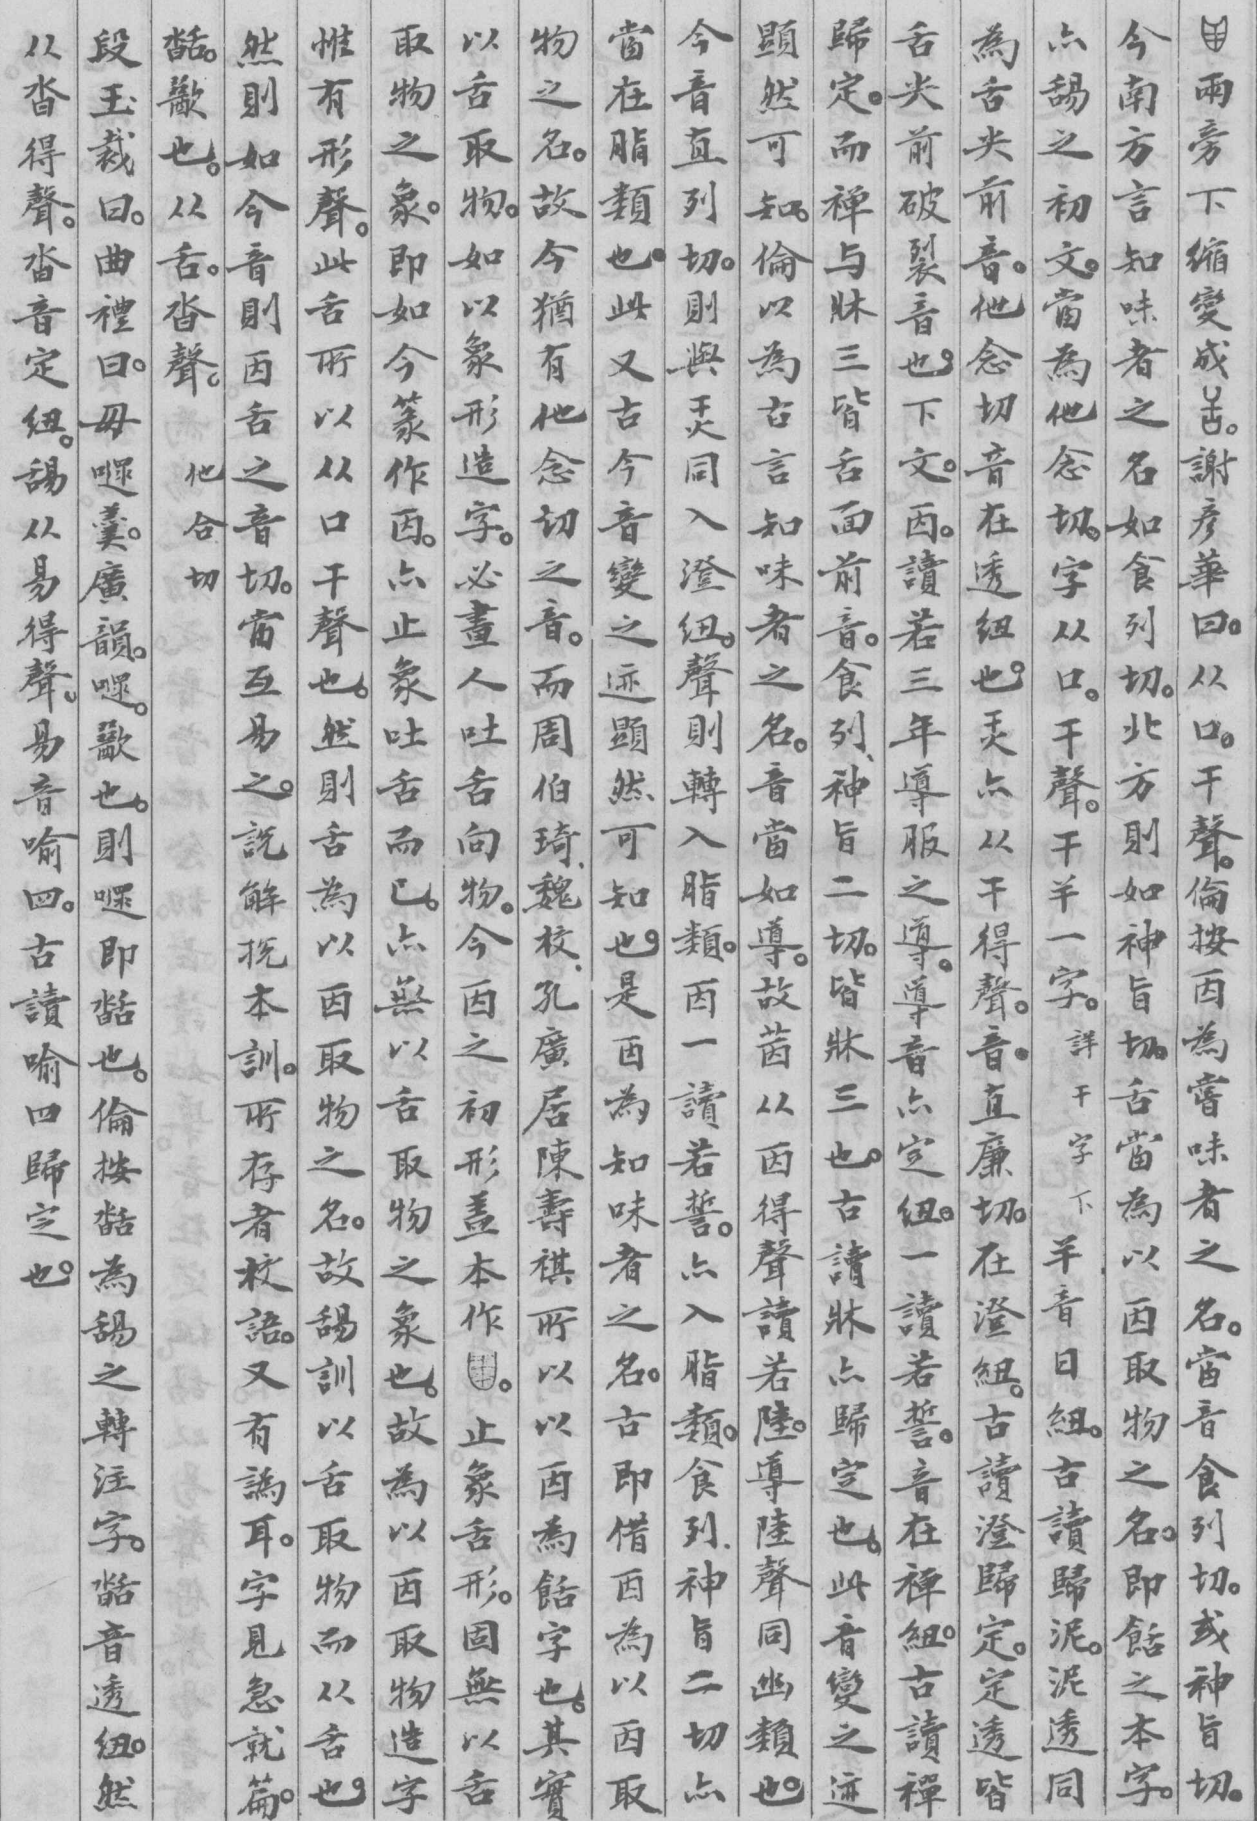 兩旁下縮變成𠯑。謝彥華曰。从口。干聲。倫按㐁為嘗味者之名。當音食列切。或神旨切。
今南方言知味者之名如食列切。北方則如神旨切。舌當為以㐁取物之名。即餂之本字。
亦𦧇之初文。當為他念切。字从口。干聲。干𢆉一字。詳干字下𢆉音日紐。古讀歸泥。泥透同
為舌尖前音。他念切音在透紐也。𤆍亦从干得聲。音直廉切。在澄紐。古讀澄歸定。定透皆
舌尖前破裂音也。下文。㐁。讀若三年導服之導。導音亦定紐。一讀若誓。音在禪紐。古讀禪
歸定。而禪与牀三皆舌面前音。食列、神旨二切。皆牀三也。古讀牀亦歸定也。此音變之迹
顯然可知。倫以為古言知味者之名。音當如導。故茵从㐁得聲讀若陸。導陸聲同幽類也。
今音直列切。則與𤆍同入澄紐。聲則轉入脂類。㐁一讀若誓。亦入脂類。食列、神旨二切亦
當在脂類也。此又古今音變之迹顯然可知也。是㐁為知味者之名。古即借㐁為以㐁取
物之名。故今猶有他念切之音。而周伯琦、魏校、孔廣居陳壽祺所以以㐁為餂字也。其實
以舌取物。如以象形造字。必畫人吐舌向物。今㐁之初形蓋本作。止象舌形。固無以舌
取物之象。即如今篆作㐁。亦止象吐舌而已。亦無以舌取物之象也。故為以㐁取物造字
惟有形聲。此舌所以从口干聲也。然則舌為以㐁取物之名。故𦧇訓以舌取物而从舌也。
然則如今音則㐁舌之音切。當互易之。說解挩本訓。所存者校語。又有譌耳。字見急就篇。
𦧟。歠也。从舌。沓聲。他合切
段玉裁曰。曲禮曰。毋嚃羹。廣韻。嚃。歠也。則嚃即𦧟也。倫按𦧟為𦧇之轉注字。𦧟音透紐。然
从沓得聲。沓音定紐。𦧇从易得聲。易音喻四。古讀喻四歸定也。